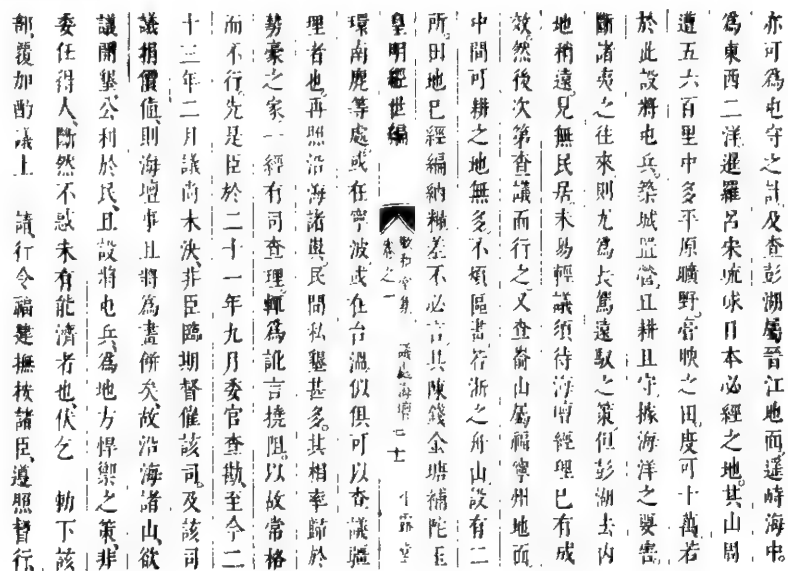 亦可為屯守之計及查彭湖屬晉江地面遥峙海中
為東西二洋暹羅呂宋琉球日本必經之地其山周
遭五六百里中多平原曠野膏腴之田度可十萬若
於此設將屯兵築城置營且耕且守據海洋之要害
斷諸夷之往來則尤為長駕遠馭之策但彭湖去內
地稍遠見無民居未易輕議須待海壇經理已有成
效然後次第查議而行之又查崳山屬福寧州地面
中間可耕之地無多不煩區畫若浙之舟山設有二
所田地已經編納糧差不必言其陳錢金塘補陀玉
皇明經世編
卷之一
議處海壇
二十
平露堂
環南麂等處或在寧波或在台溫似俱可以查議疆
理者也再照沿海諸輿民間私墾甚多其相率歸於
勢豪之家一經有司查理輒為訛言撓阻以故常格
而不行先是臣於二十一年九月委官查勘至今二
十三年二月議尚未決非臣臨期督催該司及該司
議捐價值則海壇事且將為畫餅矣故沿海諸山欲
議開墾公利於民且設將屯兵為地方悍禦之策非
委任得人斷然不惑未有能濟者也伏乞 勑下該
部覆加酌議上 請行令福建撫按諸臣遵照督行